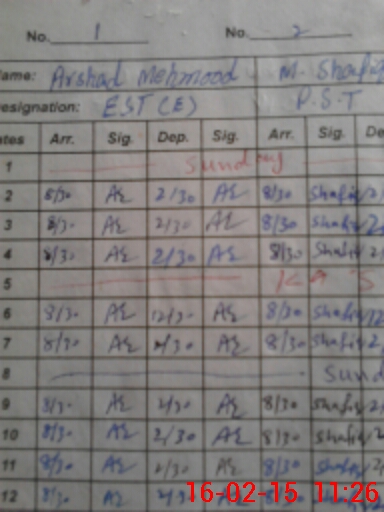 No. 1 No. 2
Name: Arshad Mehmood M. Shafiq
Designation: EST (E) P.S.T
Dates Arr. Sig. Dep. Sig. Arr. Sig. De
1 Sunday
2 8/30 AS 2/30 AS 8/30 Shafiq 2/
3 8/30 AS 2/30 AS 8/30 Shafiq 2
4 8/30 AS 2/30 AS 8/30 Shafiq 2/
5
6 8/30 AS 12/30 AS 8/30 Shafiq 12
7 8/30 AS 2/30 AS 8/30 Shafiq 2
8 Sund
9 8/30 AS 2/30 AS 8/30 Shafiq 2
10 8/30 AS 2/30 AS 8/30 Shafiq 2
11 8/30 AS 2/30 AS 8/30 Shafiq 2
12 8/30 AS
16-02-15 11:26